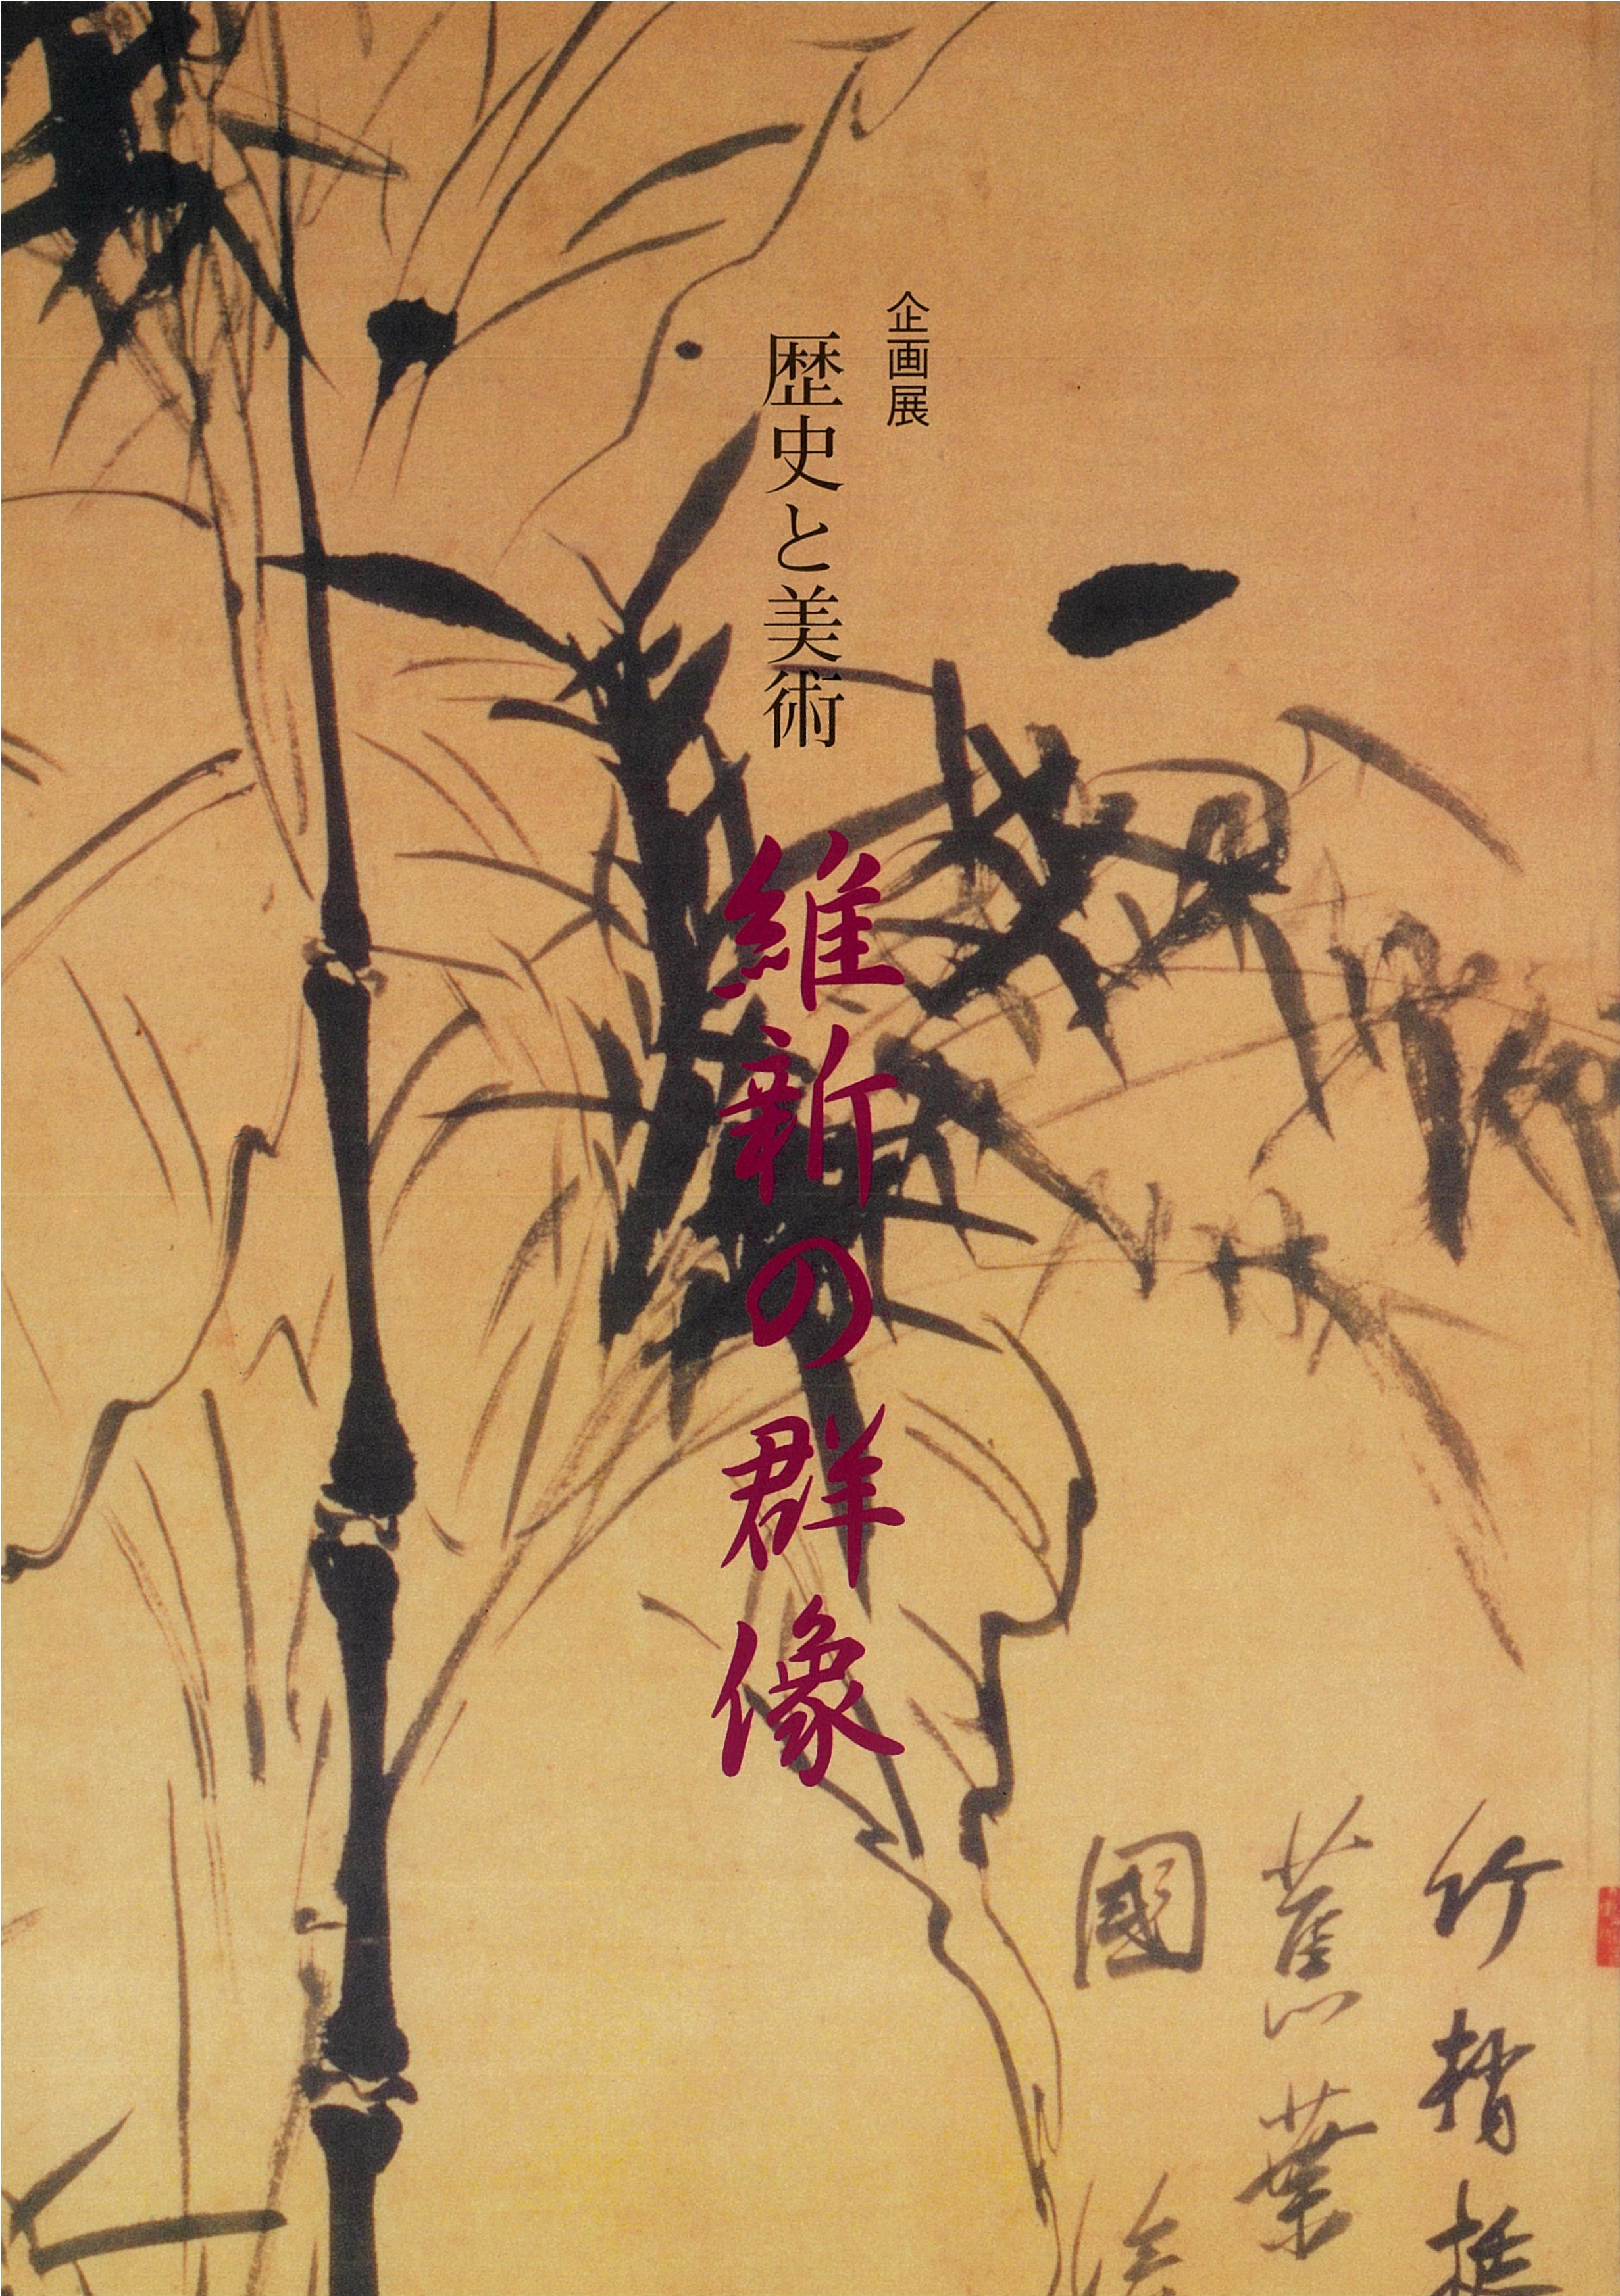 企画展
歴史と美術
維新の群像
竹
葉
國